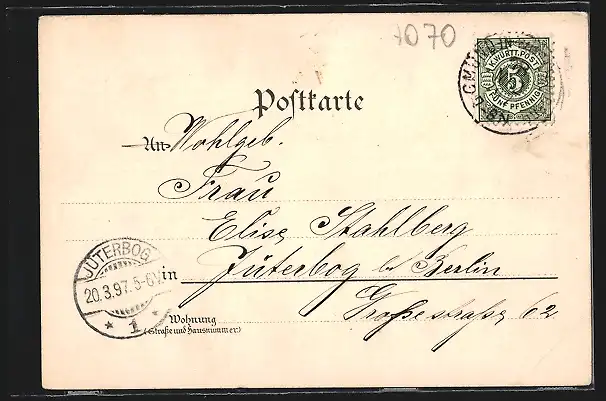 1070
GMÜND IN
K. WÜRTT. POST
5
FÜNF PFENNIG
Postkarte
An Wohlgeb.
Frau
Elise Stahlberg
in Jüterbog bei Berlin
Großestraße 62
Wohnung
(Straße und Hausnummer)
JÜTERBOG
20.3.97. 5-6N
* 1 *